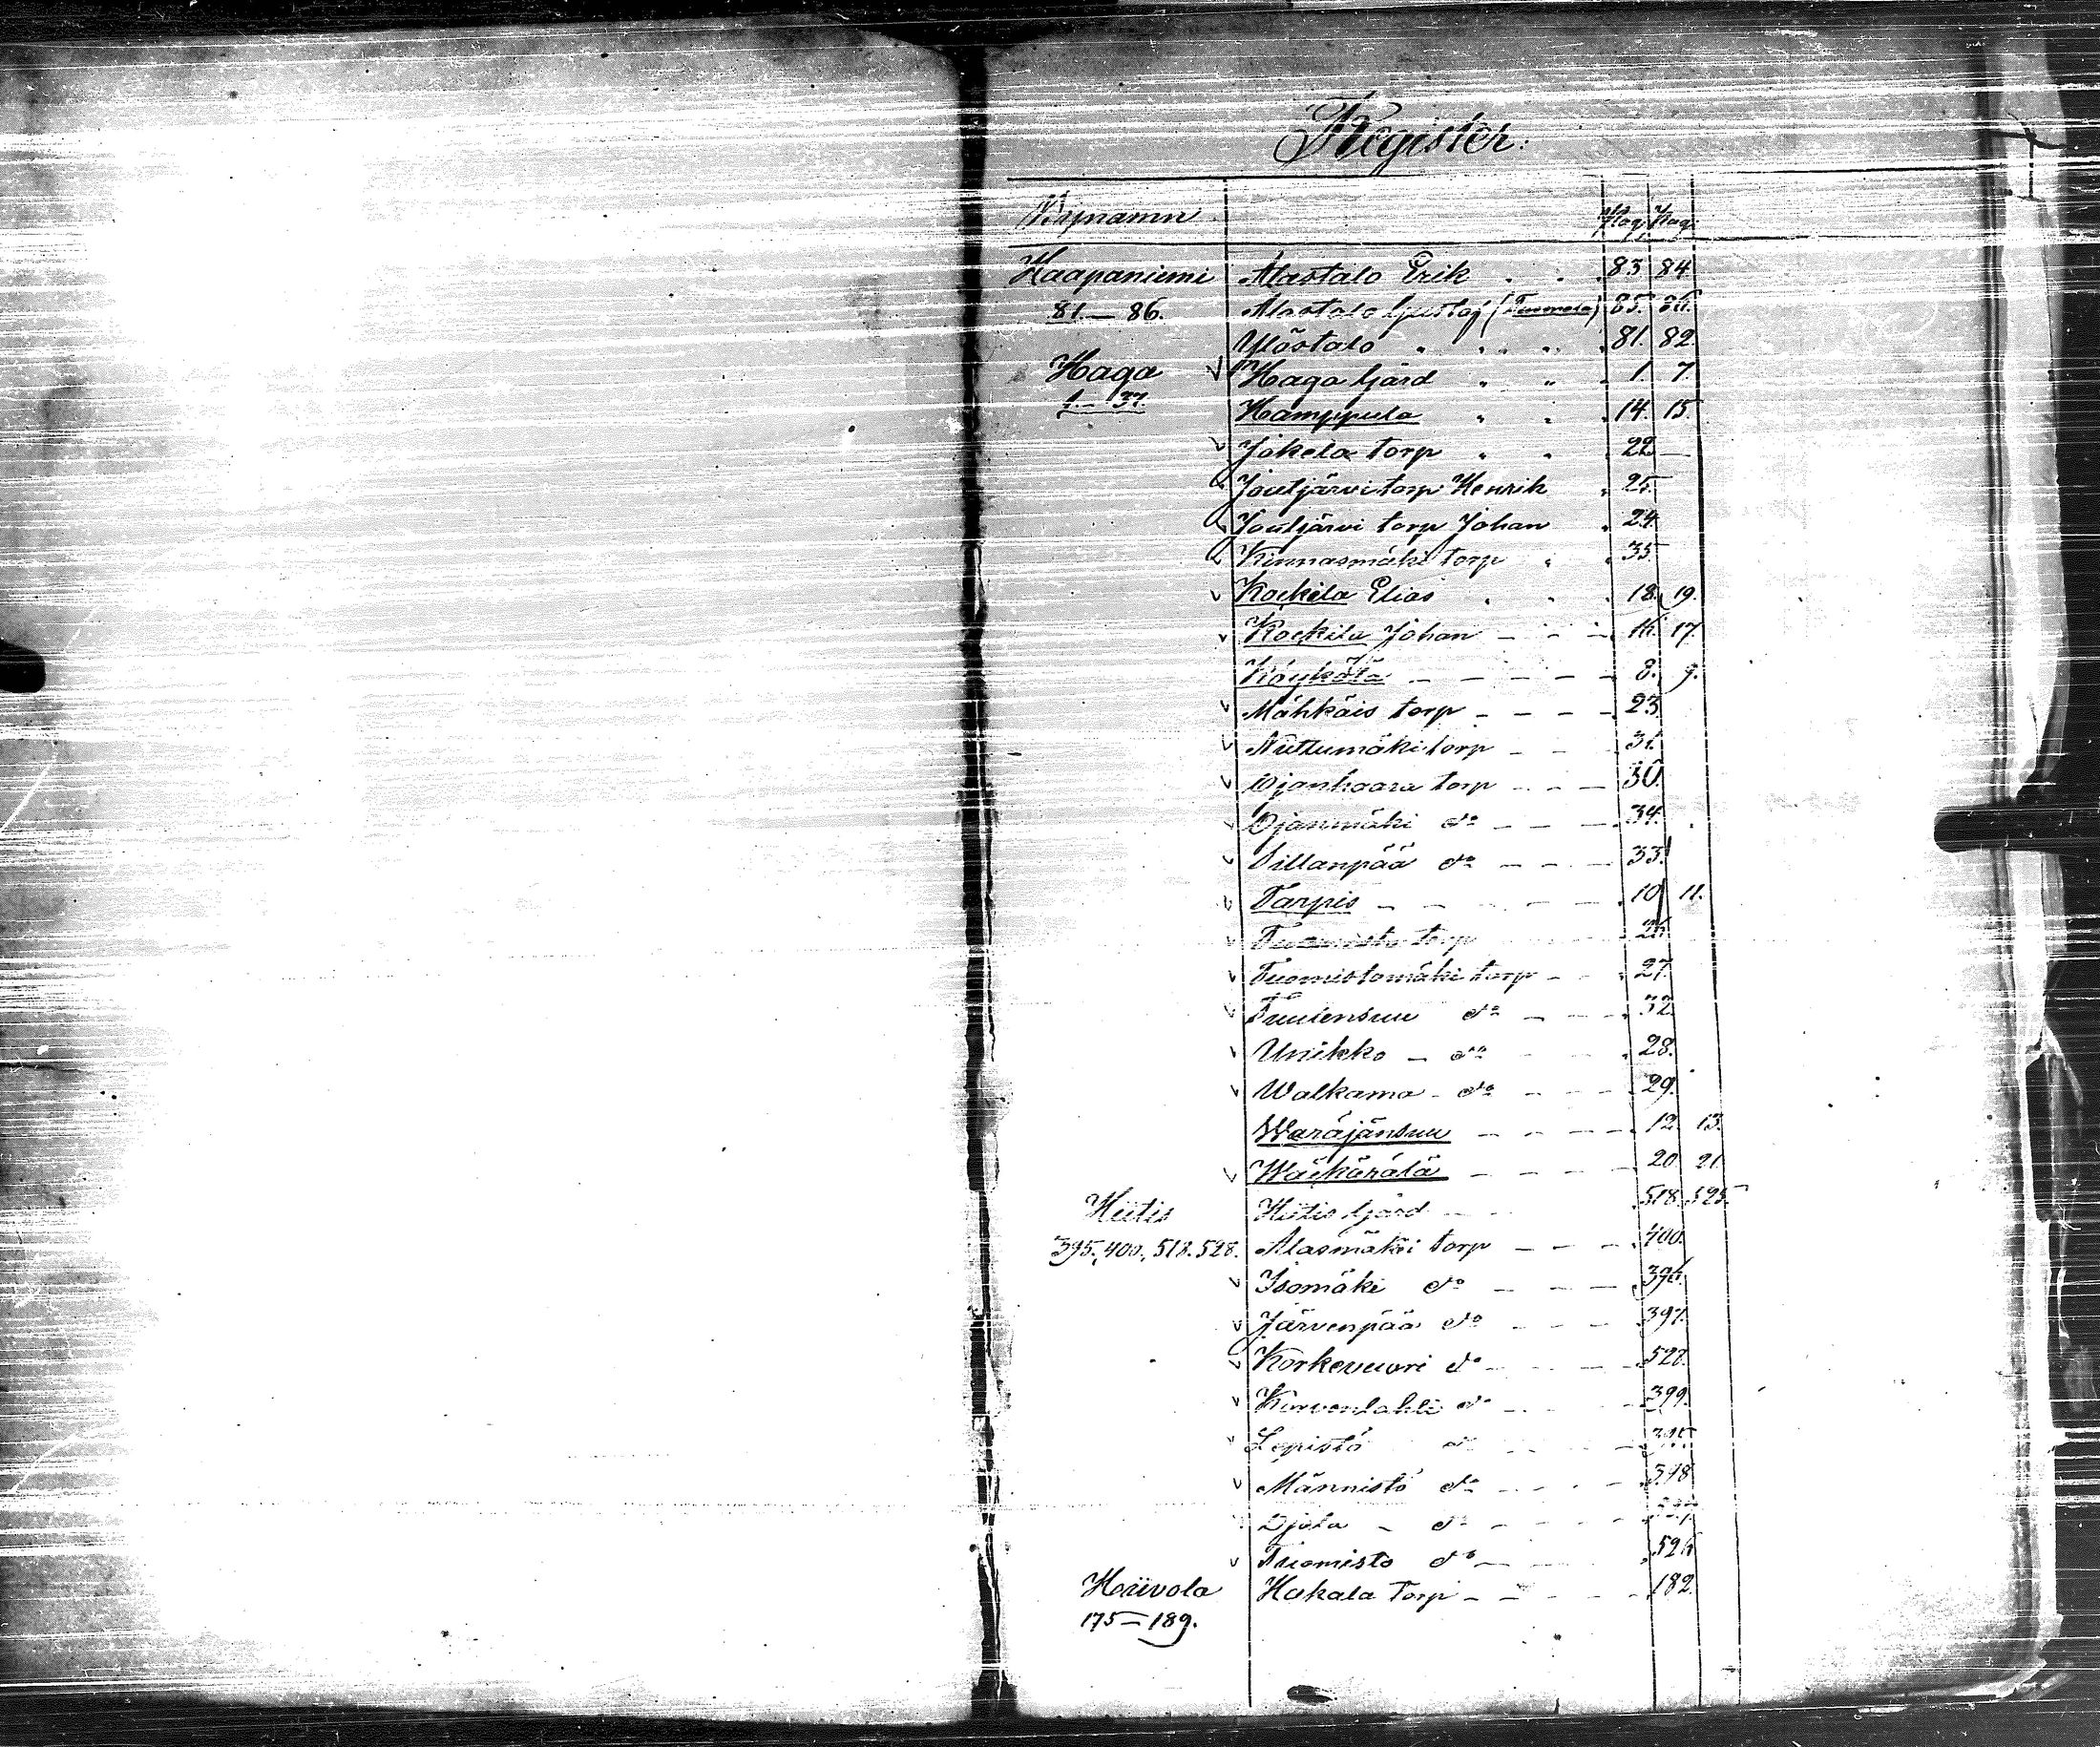 Register.
Bynamn Pag. Pag.
Haapaniemi Alastalo Erik 83 84.
81.—86. Alastalo Gustaf (Tuomola) 85. 86.
Ylöstalo 81. 82.
Haga Haga Gård 1. 7.
1.—37. Hamppula 14. 15.
Jokela torp 22 —
Joutjärvi torp Henrik 25.
Joutjärvi torp Johan 24.
Kinnasmäki torp 35.
Kockila Elias 18. 19.
Kockila Johan 16. 17.
Köykölä 8. 9.
Mähkäis torp 23.
Nuttumäki torp 31.
Ojanhaara torp 30.
Ojanmäki do 34.
Sillanpää do 33.
Tarpis 10 11.
Tuomisto torp 26
Tuomistomäki torp 27
Tuulensuu do 32.
Unikko do 28.
Walkama do 29.
Waräjänsuu 12. 13.
Wäckärälä 20 21
Hiitis Hiitis Gård 518. 525.
395, 400, 518. 528. Alasmäki torp 400.
Isomäki do 396.
Järvenpää do 397.
Korkevuori do 528.
Korvenlahti do 399.
Lepistö do 395
Männistö do 398
Ojola do
Tuomisto do 526
Hiivola Hakala Torp 182.
175—189.